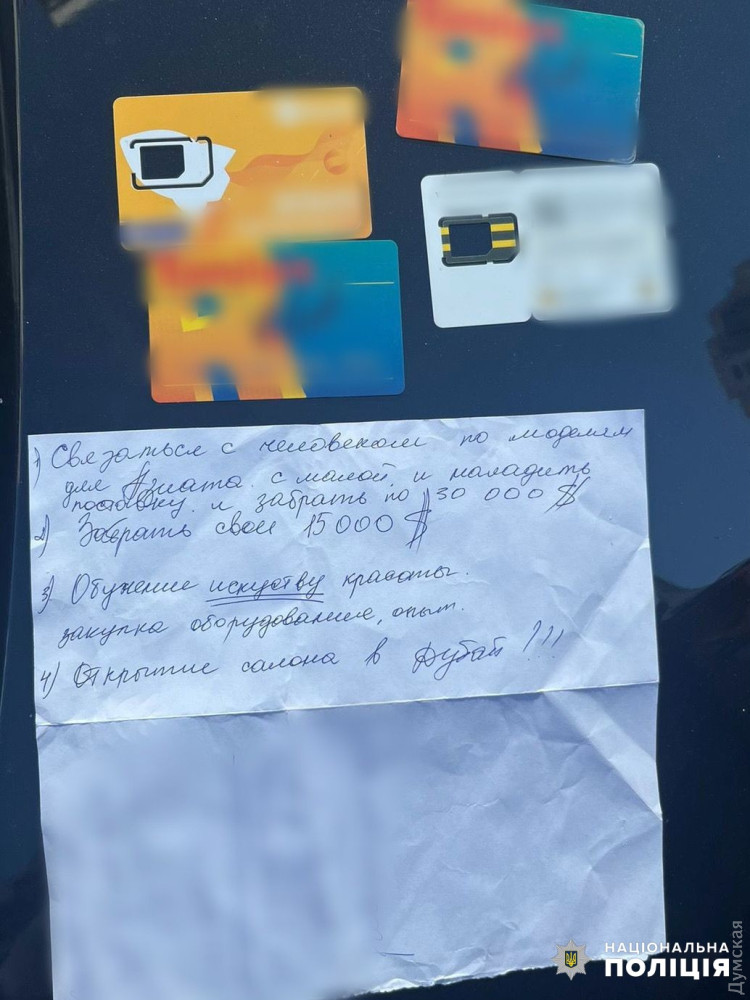 1) Связаться с человеком по моделям
для Азиата. с малой и наладить
поставку. и забрать по 30 000 $
2) Забрать свои 15000 $
3) Обучение искуству красоты.
закупка оборудование, опыт.
4) Открытие салона в Дубай !!!
НАЦІОНАЛЬНА
ПОЛІЦІЯ
Думская